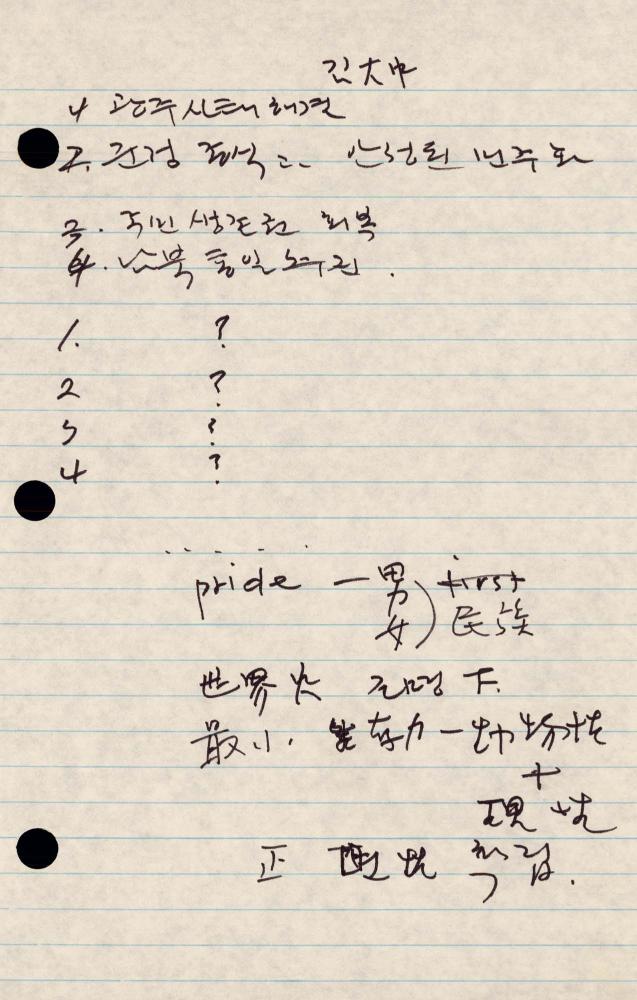 김大中
1. 광주사태 해결
2. 군정 종식 안정된 민주화
3. 국민 생존권 회복
4. 남북 통일
1. ?
2 ?
3 ?
4 ?
pride — 男 first
女) 民族
世界 下.
最小. 生存力 — 動物性
+
理性
正 확립.